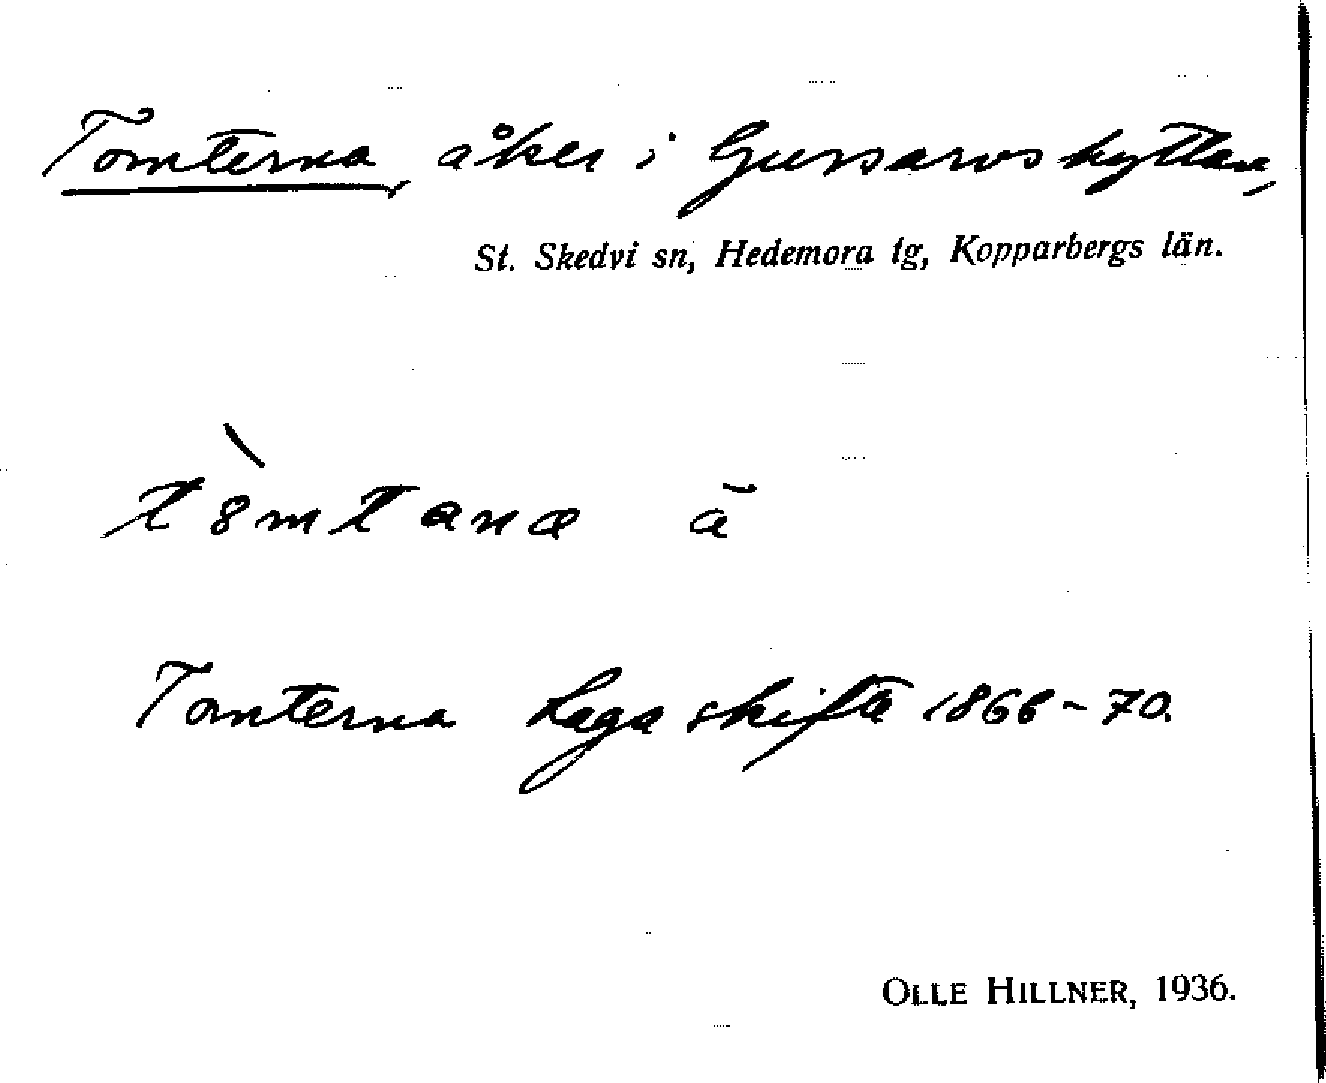 Tomterna, åker i Gussarvshyttan,
St. Skedvi sn, Hedemora tg, Kopparbergs län.
tòmtana ā
Tomterna Laga skifte 1868-70.
OLLE HILLNER, 1936.